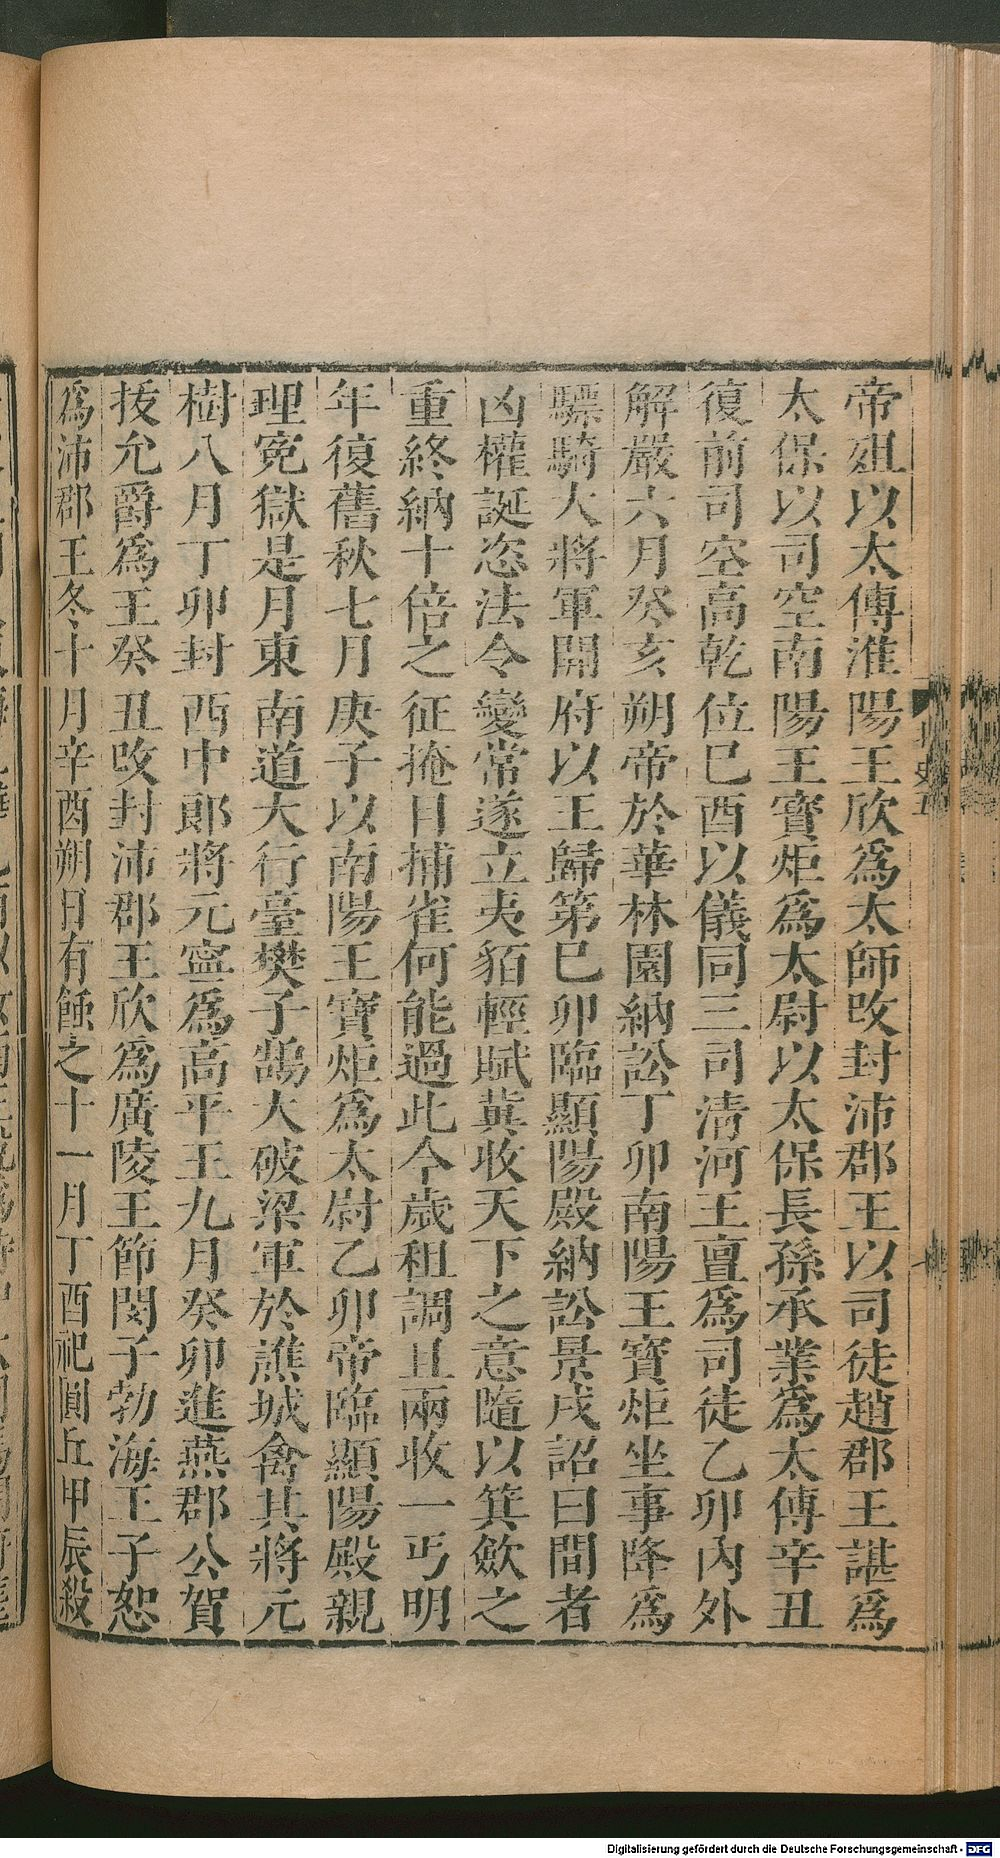 帝姐以太傅淮陽王欣爲太師改封沛郡王以司徒趙郡王諶爲
太保以司空南陽王寶炬爲太尉以太保長孫承業爲太傅辛丑
復前司空高乾位巳酉以儀同三司清河王亶爲司徒乙卯內外
解嚴六月癸亥朔帝於華林園納訟丁卯南陽王寶炬坐事降爲
驃騎大將軍開府以王歸第巳卯臨顯陽殿納訟景戌詔曰間者
凶權誕恣法令變常遂立夷貊輕賦冀收天下之意隨以箕斂之
重終納十倍之征掩目捕雀何能過此今歲租調且兩收一丐明
年復舊秋七月庚子以南陽王寶炬爲太尉乙卯帝臨顯陽殿親
理冤獄是月東南道大行臺樊子鵠大破梁軍於譙城禽其將元
樹八月丁卯封西中郎將元寍爲高平王九月癸卯進燕郡公賀
拔允爵爲王癸丑改封沛郡王欣爲廣陵王節閔子勃海王子恕
爲沛郡王冬十月辛酉朔日有餘之十一月丁酉祀圓丘甲辰殺
Digitalisierung gefördert durch die Deutsche Forschungsgemeinschaft - DFG